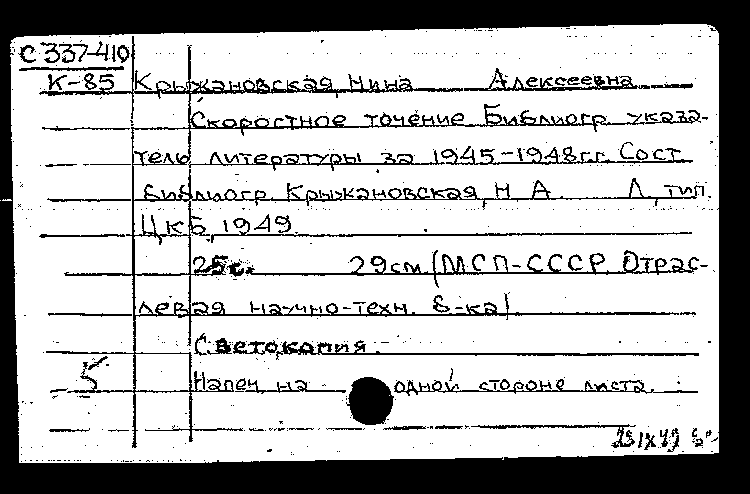 С 337-410
К-85 Крыжановская, Нина Алексеевна
Скоростное точение Библиогр. указа-
тель литературы за 1945-1948г.г. Сост.
библиогр. Крыжановская, Н. А. Л., тип.
ЦКБ, 1949.
25с. 29см. (МСП-СССР. Отрас-
левая научно-техн. б-ка).
Светокопия.
5 Напеч. на одной стороне листа.